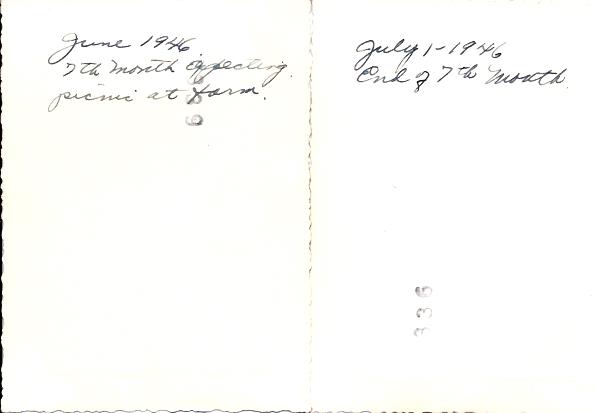 June 1946.
7th Month expecting.
picnic at farm.
July 1-1946
End of 7th Month.
336